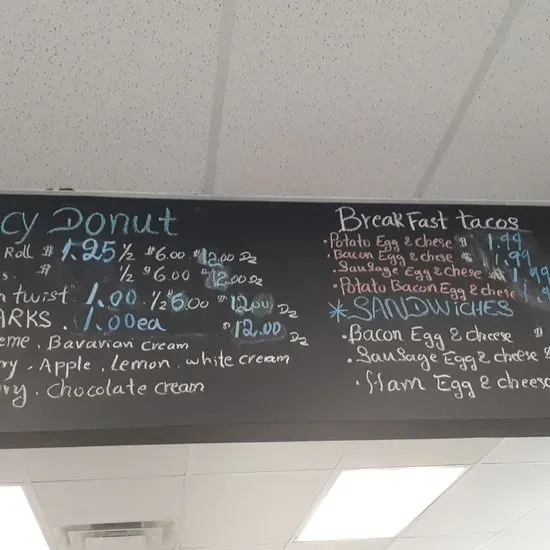 cy Donut
Roll $ 1.25 1/2 $6.00 $12.00 Dz
s. $ 1/2 $6.00 $12.00 Dz
twist 1.00 1/2 $6.00 $12.00 Dz
ARKS. 1.00ea $12.00 Dz
eme, Bavarian cream
ry. Apple, Lemon, white cream
rry. Chocolate cream
BreakFast tacos
• Potato Egg & chese $ 1.99
• Bacon Egg & chese $ 1.99
• Sausage Egg & chese $ 1.99
• Potato Bacon Egg & chese
*SANDWiCHES
• Bacon Egg & cheese $
• Sausage Egg & cheese $
• Ham Egg & cheese